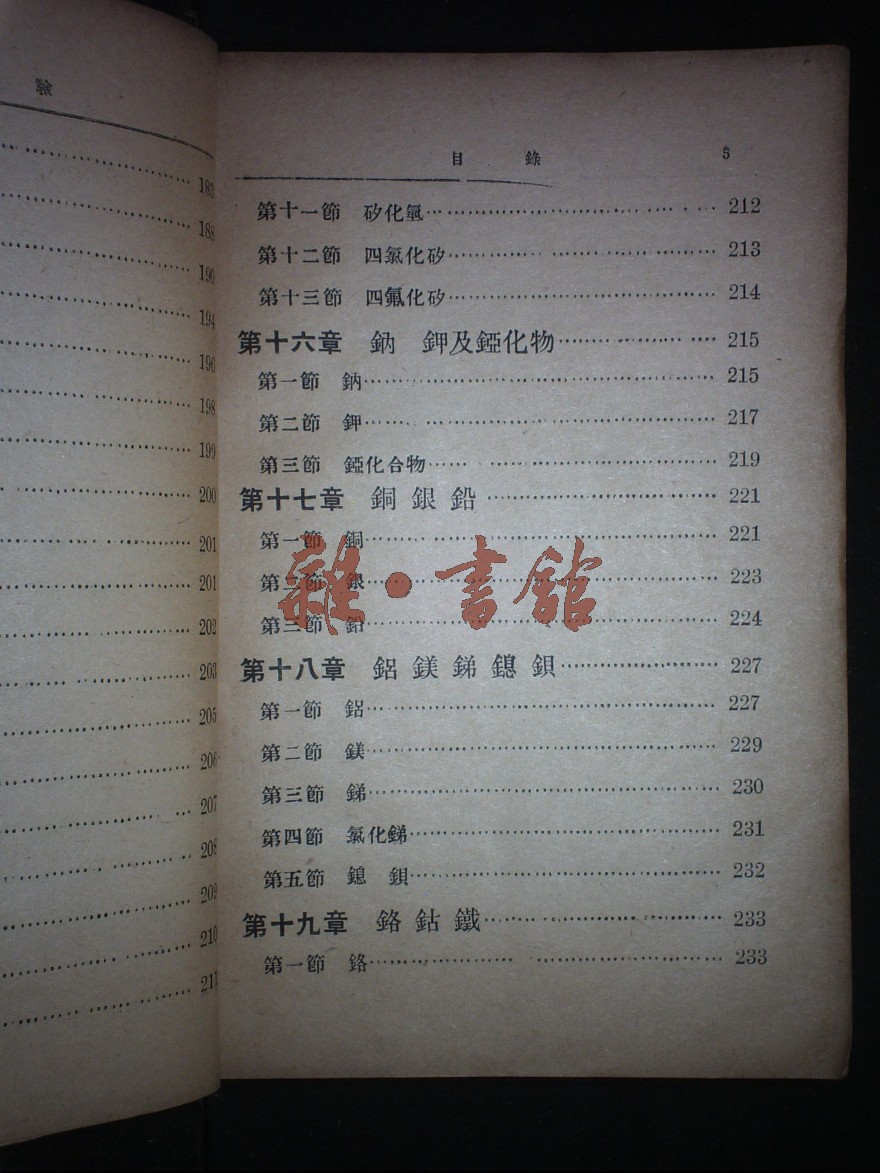 驗
183
188
190
194
196
198
199
200
201
201
202
203
205
206
207
208
209
210
211
目 錄 5
第十一節 矽化氫 212
第十二節 四氯化矽 213
第十三節 四氟化矽 214
第十六章 鈉 鉀及錏化物 215
第一節 鈉 215
第二節 鉀 217
第三節 錏化合物 219
第十七章 銅 銀 鉛 221
第一節 銅 221
第二節 銀 223
第三節 鉛 224
雜·書館
第十八章 鋁 鎂 銻 鎴 鋇 227
第一節 鋁 227
第二節 鎂 229
第三節 銻 230
第四節 氯化銻 231
第五節 鎴 鋇 232
第十九章 鉻 鈷 鐵 233
第一節 鉻 233